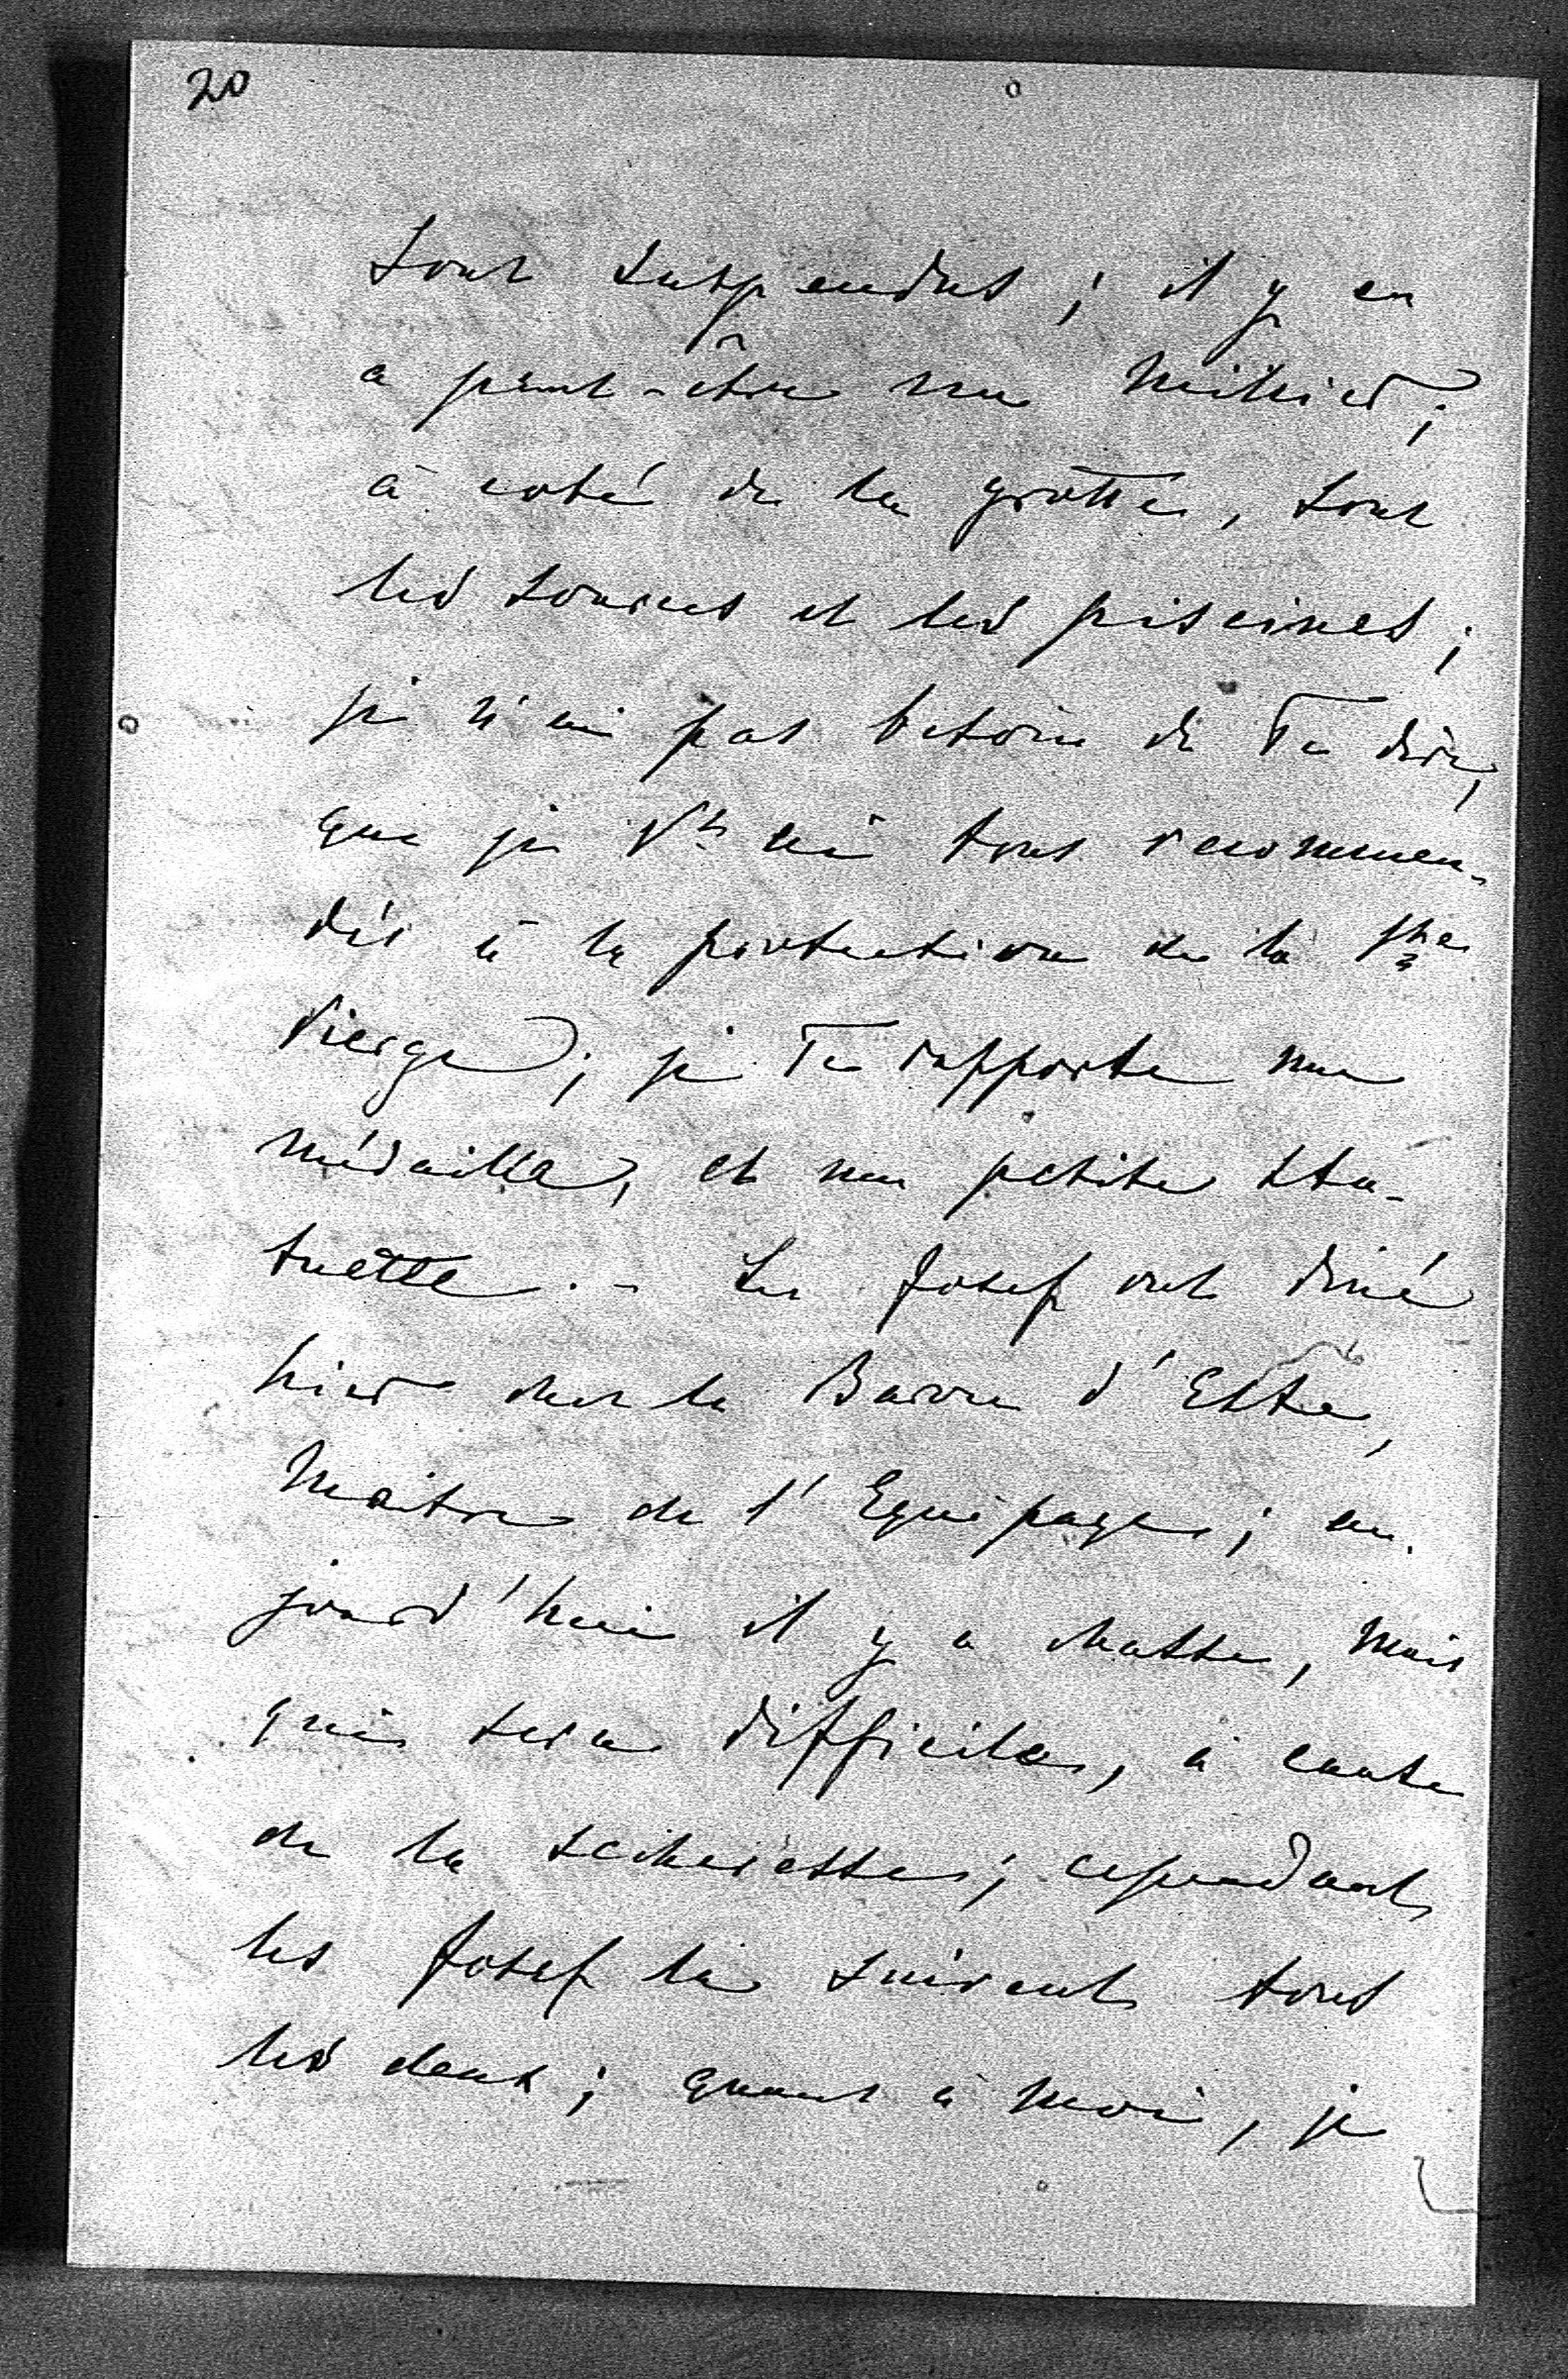 20
sont suspendus ; il y en
a peut-être un millier ;
à coté de la grotte, sont
les sources et les piscines ;
je n'ai pas besoin de Te dire,
que je Vs ai tous recomman-
dés à la protection de la Ste
Vierge ; je Te rapporte une
médaille, et une petite sta-
tuette. - Les Josef ont diné
hier chez le Baron d'Este,
Maitre de l'Equipage ; au-
jourd'hui il y a chasse, mais
qui sera difficile, à cause
de la sécheresse ; cependant
les Josef la suivent tous
les deux ; quant à moi, je